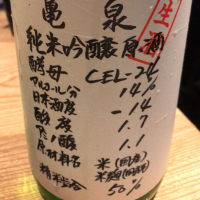 生酒
亀泉
純米吟醸原酒
酵母 CEL-24
アルコール分 14%
日本酒度 -14
酸度 1.7
アミノ酸 1.1
原材料名 米(国産)
米麹(国産米)
精米歩合 50%